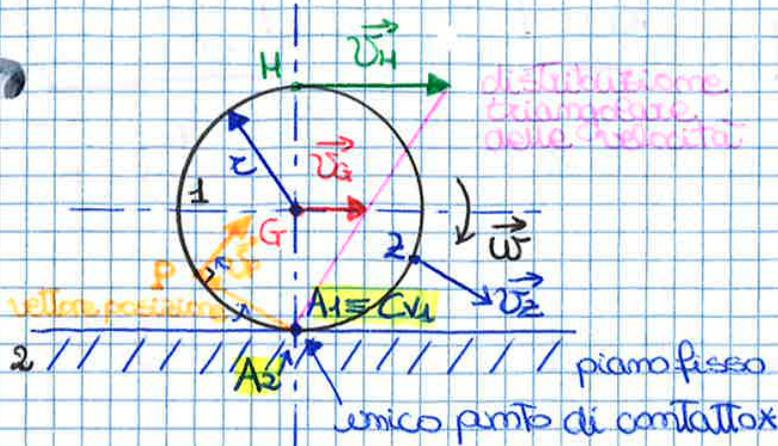 H
v_H
distribuzione
triangolare
delle velocità
r
v_G
1
G
ω
P
Z
vettore posizione
A1 ≡ CV1
v_Z
2
A2
piano fisso
unico punto di contatto*